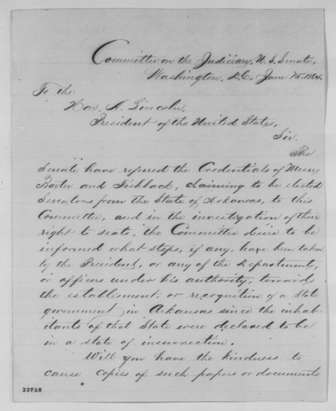 Committee on the Judiciary, U.S. Senate,
Washington, D.C. June 15, 1864.
To the
Hon. A. Lincoln,
President of the United States,
Sir.
The
Senate have referred the Credentials of Messrs
Baxter and Fishback, claiming to be elected
Senators from the State of Arkansas, to this
Committee, and in the investigation of their
right to seats, the Committee desire to be
informed what steps, if any, have been taken
by the President, or any of the Department,
or officers under his authority, towards
the establishment or recognition of a State
government in Arkansas since the inhab-
itants of that State were declared to be
in a state of insurrection.
Will you have the kindness to
cause copies of such papers or documents